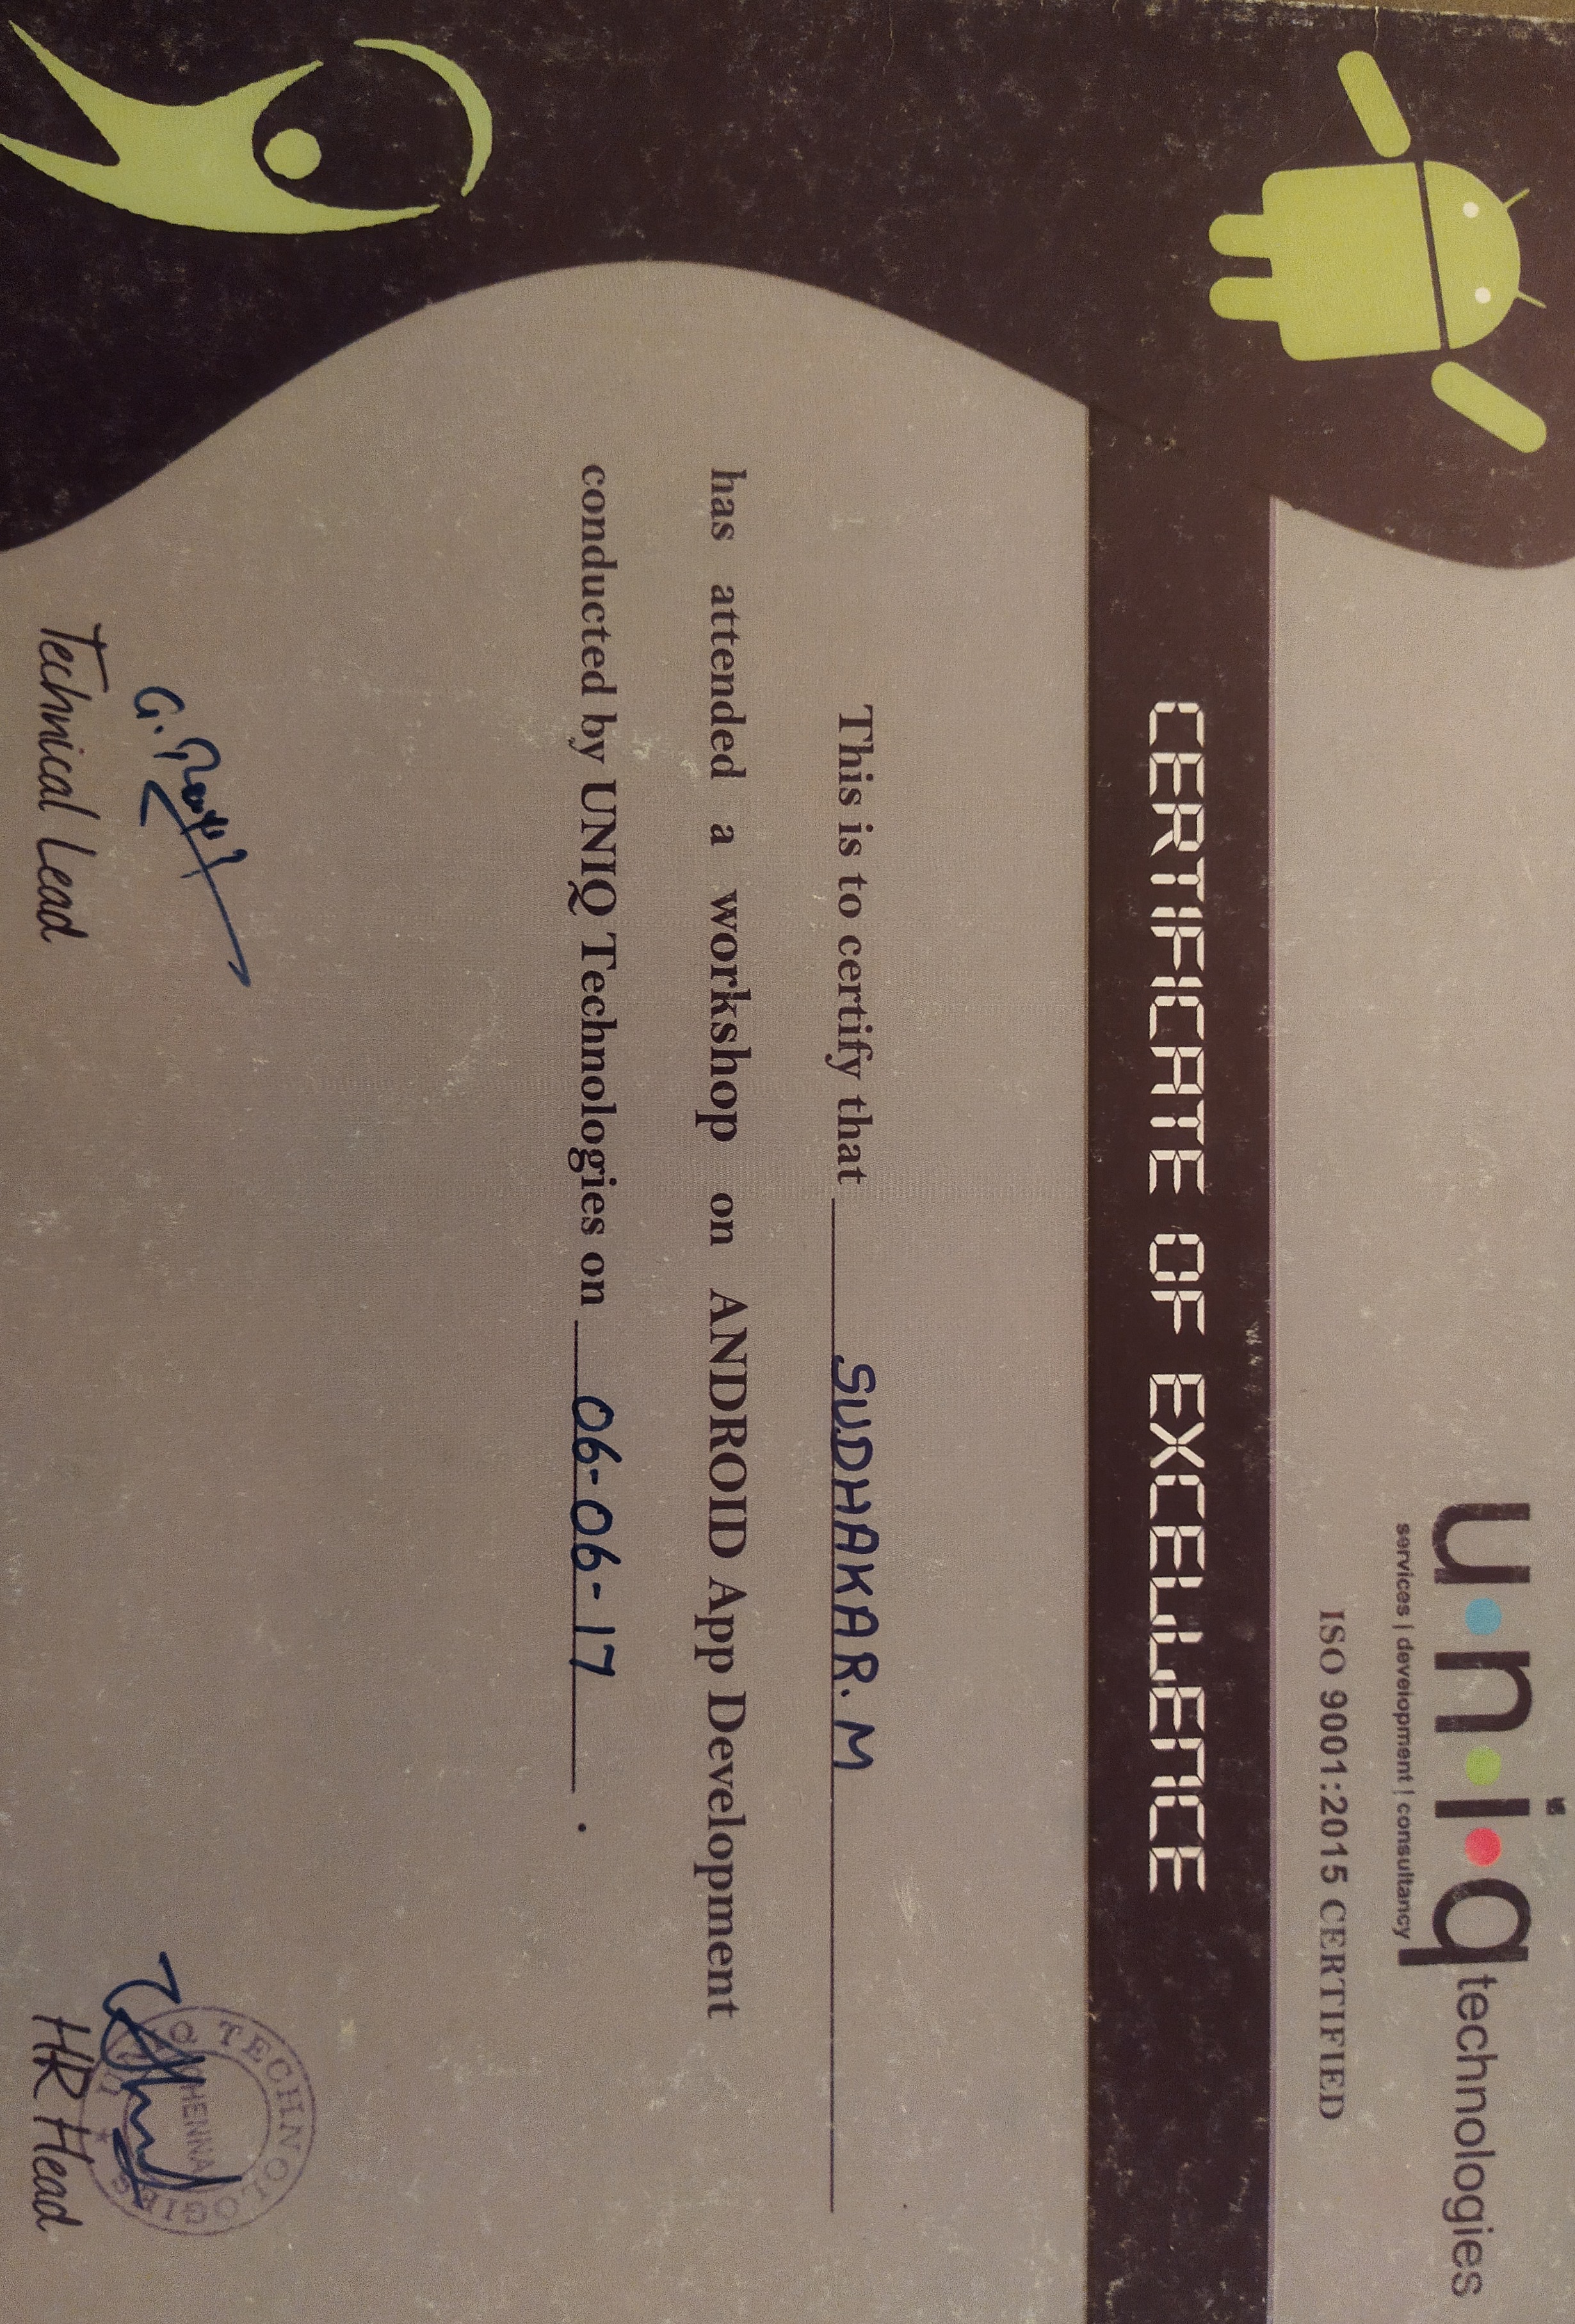 u·n·i·q technologies
services | development | consultancy
ISO 9001:2015 CERTIFIED
CERTIFICATE OF EXCELLENCE
This is to certify that SUDHAKAR. M
has attended a workshop on ANDROID App Development
conducted by UNIQ Technologies on 06-06-17 .
Technical Lead
UNIQ TECHNOLOGIES
CHENNAI
HR Head